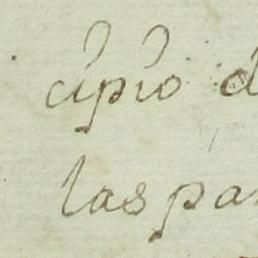 cipio d
las par